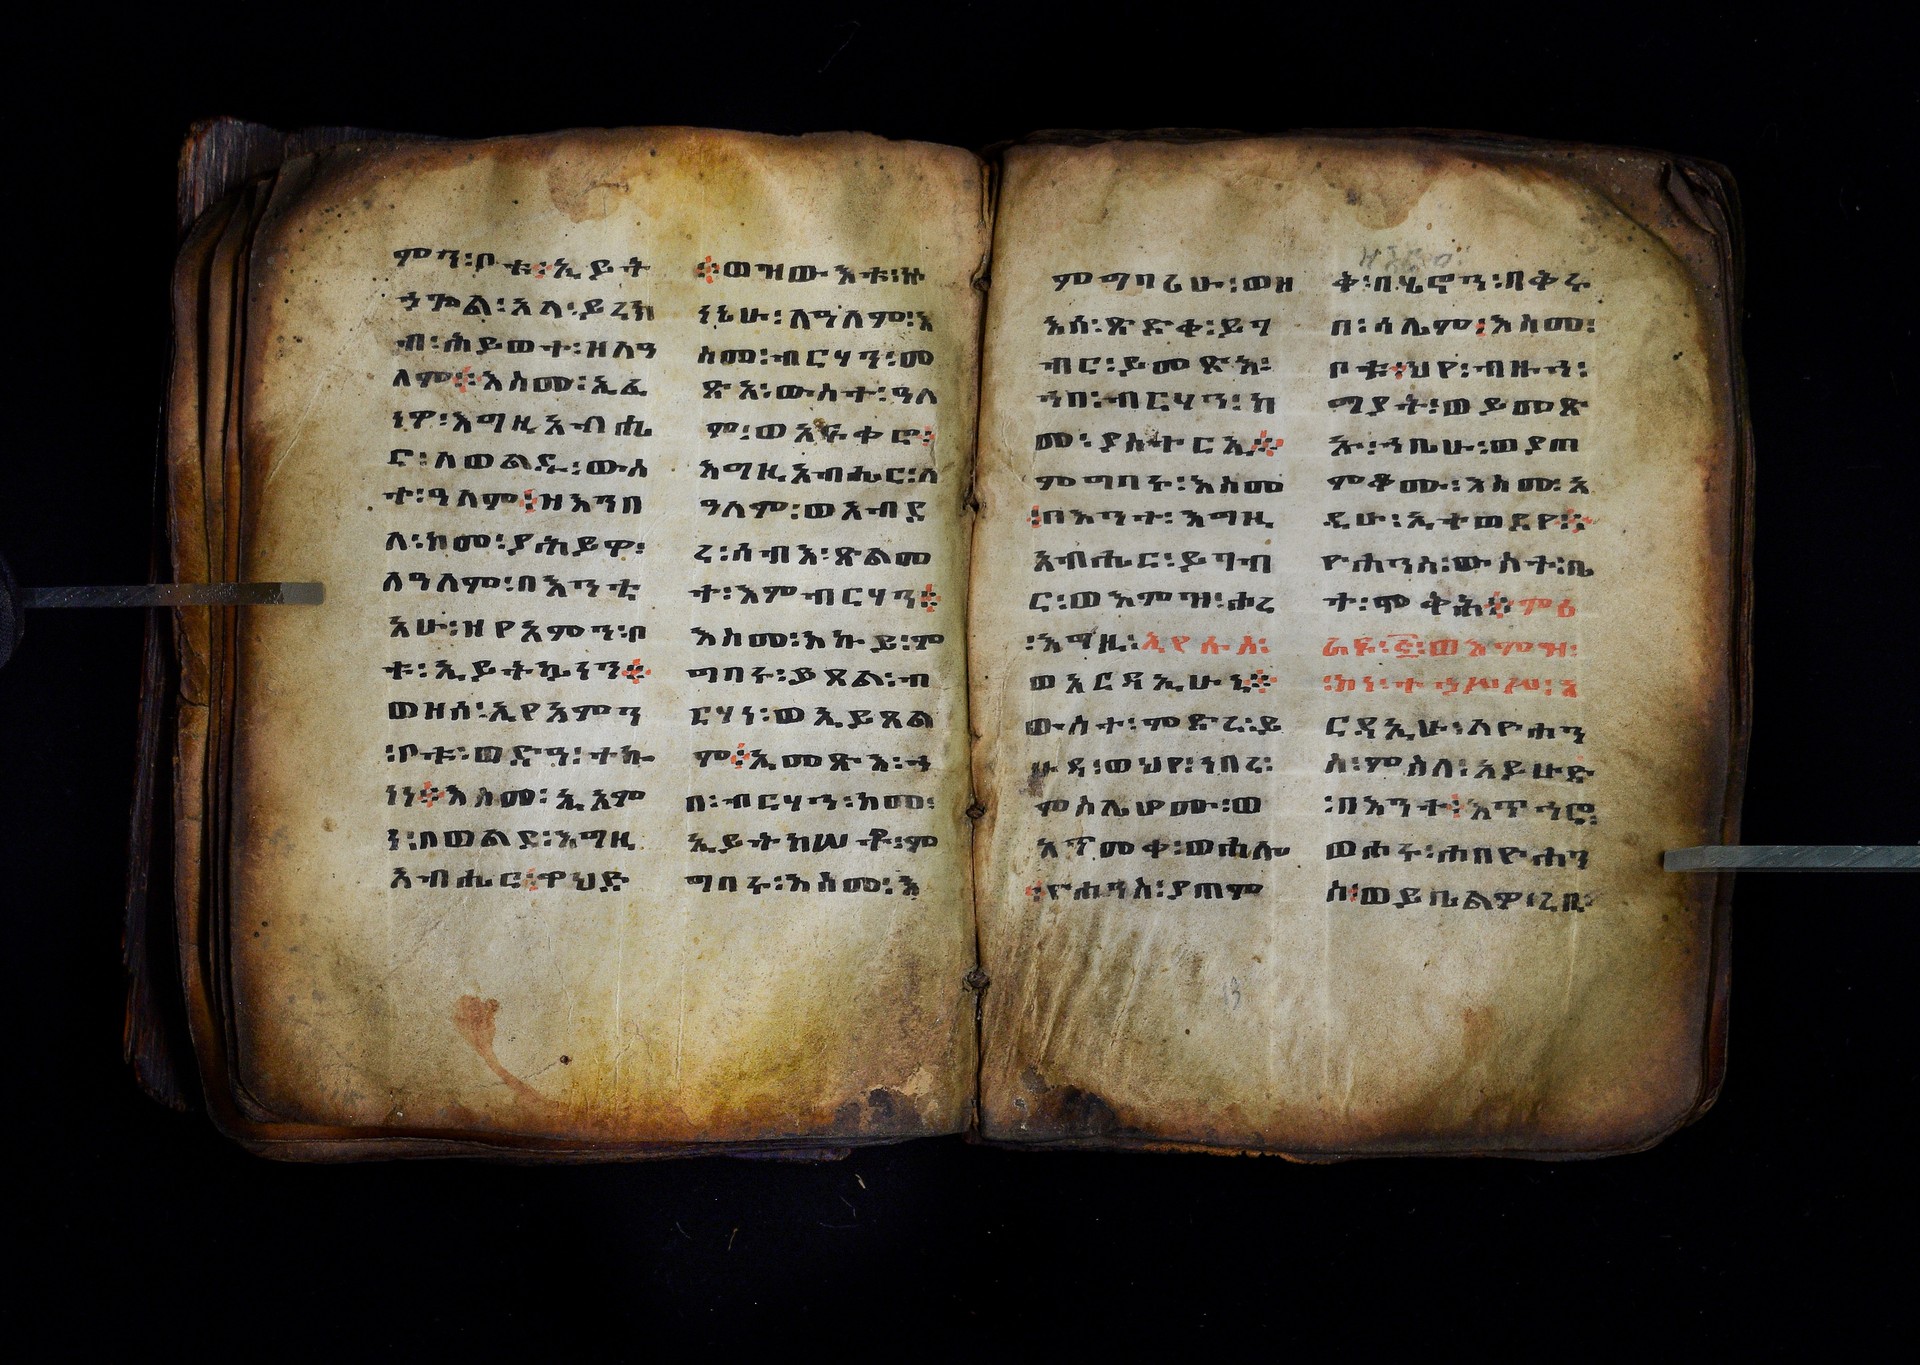 ምን፡ቦቱ፡ኢይት
ኀጐል፡አላ፡ይረክ
ብ፡ሕይወተ፡ዘለዓ
ለም፨እስመ፡ኢፈ
ነዎ፡እግዚአብሔ
ር፡ለወልዱ፡ውስ
ተ፡ዓለም፡ዝእንበ
ለ፡ከመ፡ያሕይዎ፡
ለዓለም፡በእንቲ
አሁ፡ዘየአምን፡ቦ
ቱ፡ኢይትኴነን፨
ወዘሰ፡ኢየአምን
፡ቦቱ፡ወድዓ፡ተኰ
ነነ፨እስመ፡ኢአም
ነ፡በወልደ፡እግዚ
አብሔር፡ዋህድ
፨ወዝውእቱ፡ኵ
ነኔሁ፡ለዓለም፡እ
ስመ፡ብርሃን፡መ
ጽአ፡ውስተ፡ዓለ
ም፡ወአፍቀሮ፡
እግዚአብሔር፡ለ
ዓለም፡ወአብደ
ረ፡ሰብእ፡ጽልመ
ተ፡እምብርሃን፨
እስመ፡እኩይ፡ም
ግባሩ፡ይጸልብ፡ብ
ርሃነ፡ወኢይጸል
ም፨ኢመጽእ፡ኀ
በ፡ብርሃን፡ከመ፡
ኢይትከሠቶ፡ም
ግባሩ፡እስመ፡እ
ምግባሪሁ፡ወዘ
እሰ፡ጽድቀ፡ይገ
ብር፡ይመጽእ፡
ኀበ፡ብርሃን፡ከ
መ፡ያስተርኢ፨
ምግባሩ፡እስመ
፡በእንተ፡እግዚ
አብሔር፡ይገብ
ር፡ወእምዝ፡ሖረ
፡እግዚ፡ኢየሱስ፡
ወአርዳኢሁኒ፨
ውስተ፡ምድረ፡ይ
ሁዳ፡ወህየ፡ነበረ፡
ምስሌሆሙ፡ወ
አጥመቀ፡ወሀሎ
፡ዮሐንስ፡ያጠም
ቅ፡በሄኖን፡በቅሩ
በ፡ሳሌም፡እስመ፡
ቦቱ፡ህየ፡ብዙኅ፡
ማያት፡ወይመጽ
ኡ፡ኀቤሁ፡ወያጠ
ምቆሙ፡እስመ፡አ
ዲሁ፡ኢተወደየ፨
ዮሐንስ፡ውስተ፡ቤ
ተ፡ሞቅሕ፨ምዕ
ራፍ፡፰፡ወእምዝ፡
፡ከነ፡ተኃሥሥ፡አ
ርዳኢሁ፡ለዮሐን
ስ፡ምስለ፡አይሁድ
፡በእንተ፡አጥኅሮ፡
ወሖሩ፡ሐበዮሐን
ስ፡ወይቤልዎ፡ረቢ፡